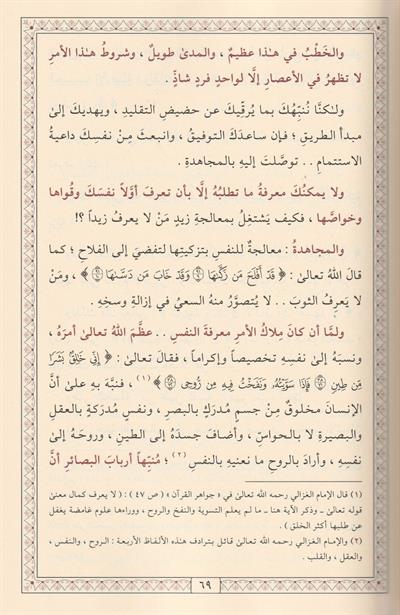 والخَطْبُ في هٰذا عظيمٌ ، والمدىٰ طويلٌ ، وشروطُ هٰذا الأمرِ
لا تظهرُ في الأعصارِ إلَّا لواحدٍ فردٍ شاذٍّ .
ولٰكنَّا نُنبِّهُكَ بما يُرقِّيكَ عن حضيضِ التقليدِ ، ويهديكَ إلىٰ
مبدأ الطريقِ ؛ فإن ساعدَكَ التوفيقُ ، وانبعثَ مِنْ نفسِكَ داعيةُ
الاستتمامِ . . توصلتَ إليهِ بالمجاهدةِ .
ولا يمكنُكَ معرفةُ ما تطلبُهُ إلَّا بأن تعرفَ أوَّلاً نفسَكَ وقُواها
وخواصَّها ، فكيف يَشتغِلُ بمعالجةِ زيدٍ مَنْ لا يعرفُ زيداً ؟!
والمجاهدةُ : معالجةٌ للنفسِ بتزكيتِها لتفضيَ إلى الفلاحِ ؛ كما
قالَ اللهُ تعالىٰ : ﴿ قَدْ أَفْلَحَ مَن زَكَّىٰهَا ۝ وَقَدْ خَابَ مَن دَسَّىٰهَا ۝ ﴾ ، ومَنْ
لا يَعرِفُ الثوبَ . . لا يُتصوَّرُ منهُ السعيُ في إزالةِ وسخِهِ .
ولمَّا أن كانَ مِلاكُ الأمرِ معرفةَ النفسِ . . عظَّمَ اللهُ تعالىٰ أمرَهُ ،
ونسبَهُ إلىٰ نفسِهِ تخصيصاً وإكراماً ، فقالَ تعالىٰ : ﴿ إِنِّى خَٰلِقٌۢ بَشَرًا
مِّن طِينٍ ۝ فَإِذَا سَوَّيْتُهُۥ وَنَفَخْتُ فِيهِ مِن رُّوحِى ۝ ﴾ (١) ، فنبَّهَ بهِ علىٰ أنَّ
الإنسانَ مخلوقٌ مِنْ جسمٍ مُدرَكٍ بالبصرِ ، ونفسٍ مُدرَكةٍ بالعقلِ
والبصيرةِ لا بالحواسِّ ، وأضافَ جسدَهُ إلى الطينِ ، وروحَهُ إلىٰ
نفسِهِ ، وأرادَ بالروحِ ما نعنيهِ بالنفسِ (٢) ؛ مُنبِّهاً أربابَ البصائرِ أنَّ
(١) قال الإمام الغزالي رحمه الله تعالىٰ في « جواهر القرآن » ( ص ٤٧ ) : ( لا يعرف كمال معنىٰ
قوله تعالىٰ ـ وذكر الآية هنا ـ ما لم يعلم التسوية والنفخ والروح ، ووراءها علوم غامضة يغفل
عن طلبها أكثر الخلق ) .
(٢) والإمام الغزالي رحمه الله تعالىٰ قائل بترادف هذه الألفاظ الأربعة : الروح ، والنفس ،
والعقل ، والقلب .
٦٩